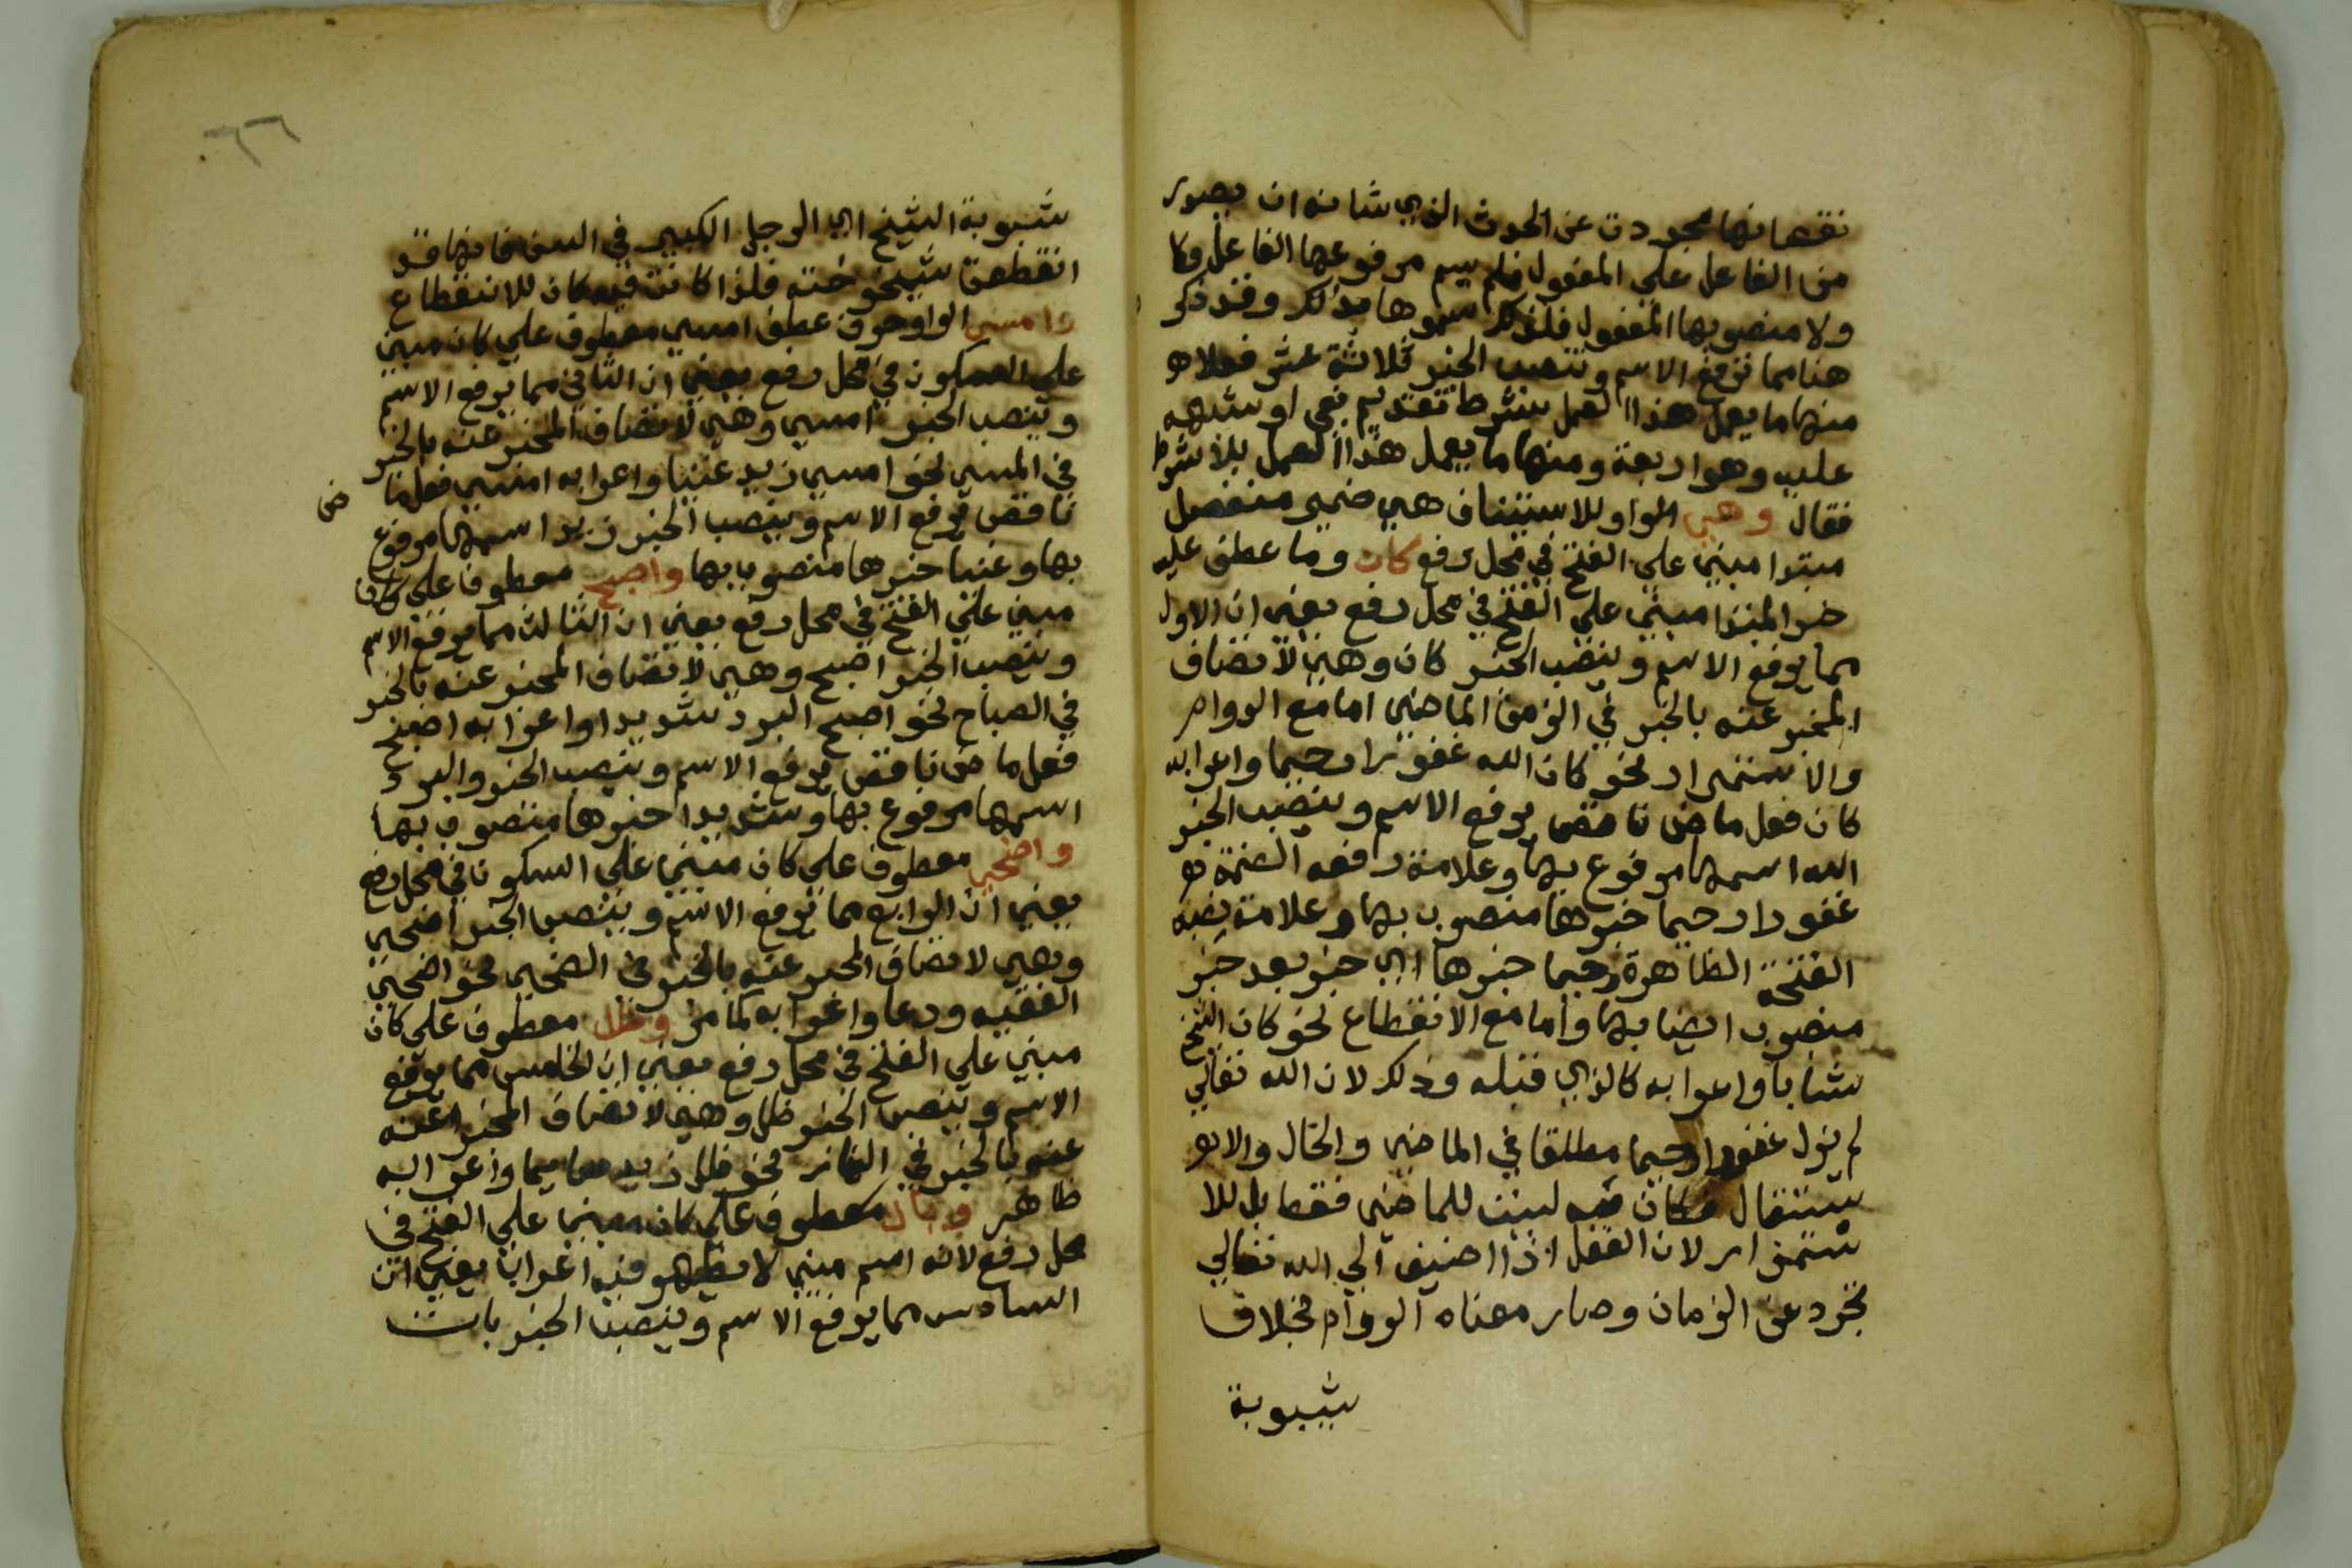 نقصانها تجردت عن الحدث الذي شانه ان يصدر
من الفاعل على المفعول فلم يسم مرفوعها الفاعل وكا
ولا منصوبها المفعول فلذلك سموها بذلك وقد ذكر
هنا مما ترفع الاسم وتنصب الخبر ثلاثة عشر فعلا هو
منها ما يعمل هذا العمل بشرط تقديم نفي او شبهه
عليه وهو اربعة ومنها ما يعمل هذا العمل بلا شرط
فقال وهي الواو للاستيناف هي ضمير منفصل
مبتدا مبني على الفتح في محل رفع كان وما عطف عليه
خبر المبتدا مبني على الفتح في محل رفع يعني ان الاول
مما يرفع الاسم وينصب الخبر كان وهي لاتصاف
المخبر عنه بالخبر في الزمن الماضي اما مع الدوام
والاستمرار نحو كان الله غفورا رحيما واعرابه
كان فعل ماض ناقص يرفع الاسم وينصب الخبر
الله اسمها مرفوع بها وعلامة رفعه الضمة هو
غفورا رحيما خبرها منصوب بها وعلامة نصبه
الفتحة الظاهرة رحيما خبرها اي خبر بعد خبر
منصوب ايضا بها واما مع الانقطاع نحو كان الشيخ
شابا واعرابه كالذي قبله وذلك لان الله تعالى
لم يزل غفورا رحيما مطلقا في الماضي والحال والا
ستقال فكان فيه ليست للماضي فقط بل للا
ستمرار لان الفعل اذا اضيف الى الله تعالى
تجرد عن الزمان وصار معناه الدوام بخلاف
شيبوبة
٦٦
شيبوبة الشيخ اي الرجل الكبير في السن فانها قد
انقطعت شيخوخته فلذا كانت فيه كان للانقطاع
وامسى الواو حرف عطف امسى معطوف على كان مبني
على السكون في محل رفع يعني ان الثاني مما يرفع الاسم
وينصب الخبر امسى وهي لاتصاف المخبر عنه بالخبر
في المسى نحو امسى زيد غنيا واعرابه امسى فعل ما
ض
ناقص يرفع الاسم وينصب الخبر زيد اسمها مرفوع
بها وغنيا خبرها منصوب بها واصبح معطوف على كان
مبني على الفتح في محل رفع يعني ان الثالث مما يرفع الاسم
وينصب الخبر اصبح وهي لاتصاف المخبر عنه بالخبر
في الصباح نحو اصبح البرد شديدا واعرابه اصبح
فعل ماض ناقص يرفع الاسم وينصب الخبر والبرد
اسمها مرفوع بها وشديدا خبرها منصوب بها
واضحى معطوف على كان مبني على السكون في محل رفع
يعني ان الرابع مما يرفع الاسم وينصب الخبر اضحى
وهي لاتصاف المخبر عنه بالخبر في الضحى نحو اضحى
الفقيه ورعا واعرابه كما مر وظل معطوف على كان
مبني على الفتح في محل رفع يعني ان الخامس مما يرفع
الاسم وينصب الخبر ظل وهي لاتصاف المخبر عنه
عنه بالخبر في النهار نحو ظل زيد صايما واعرابه
ظاهر وبات معطوف على كان مبني على الفتح في
محل رفع لانه اسم مبني لا يظهر فيه اعراب يعني ان
السادس مما يرفع الاسم وينصب الخبر بات